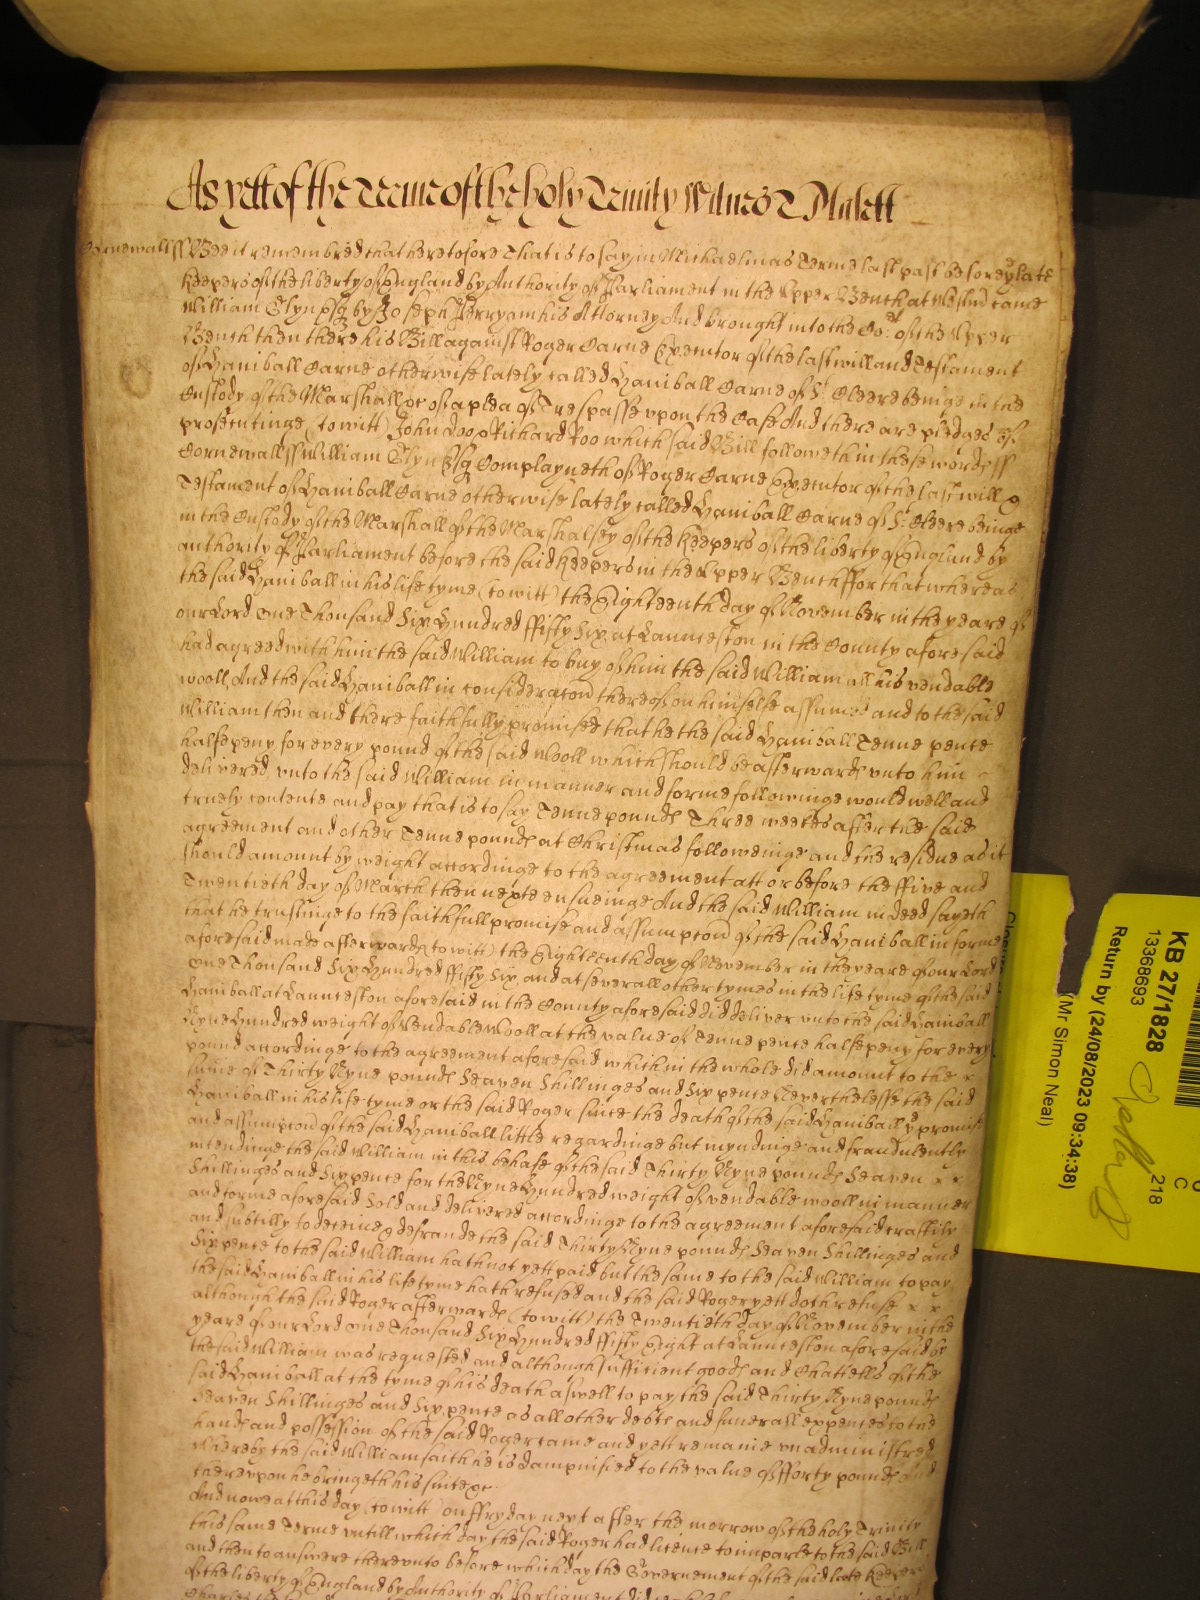 As yett of the Terme of the holy Trinity Witnes T Malett
Cornewall ss Bee it remembred that heretofore That is to say in Michaelmas Terme last past before ye late
Keepers of the liberty of England by Authority of Parliament in the Upper Bench at Westmr came
William Glyn Esq by Joseph Perryam his Attorney And brought into the Cort of the Upper
Bench then there his Bill against Roger Carne Executor of the last will and Testament
of Haniball Carne otherwise lately called Haniball Carne of St Cleere beinge in the
Custody of the Marshall &c of a plea of Trespasse vpon the Case And there are pledges of
prosecutinge (to witt) John Doo & Richard Roo which said Bill followeth in these wordes ss
Cornewall ss William Glyn Esq Complayneth of Roger Carne Executor of the last will &
Testament of Haniball Carne otherwise lately called Haniball Carne of St Cleere beinge
in the Custody of the Marshall of the Marshalsey of the Keepers of the liberty of England by
authority of Parliament before the said Keepers in the Upper Bench ffor that whereas
the said Haniball in his life tyme (to witt) the Eighteenth day of November in the yeare of
our Lord One Thousand Six Hundred ffifty Six at Launceston in the County aforesaid
had agreed with him the said William to buy of him the said William all his vendable
wooll And the said Haniball in consideracon thereof on himselfe assumed and to the said
William then and there faithfully promised that he the said Haniball Tenne pence
halfe peny for every pound of the said Wooll which should be afterwards vnto him
delivered vnto the said William in manner and forme followinge would well and
truely contente and pay that is to say Tenne pounds Three weekes after the said
agreement and other Tenne pounds at Christmas followeinge and the residue as it
should amount by weight accordinge to the agreement att or before the ffive and
Twentieth day of March then nexte ensueinge And the said William in deed sayeth
that he trustinge to the faithfull promise and assumpcon of the said Haniball in forme
aforesaid made afterwards (to witt) the Eighteenth day of November in the yeare of our Lord
One Thousand Six Hundred ffifty Six and at severall other tymes in the life tyme of the said
Haniball at Launceston aforesaid in the County aforesaid did deliver vnto the said Haniball
Nyne Hundred weight of Vendable Wooll at the value of Tenne pence halfe peny for every
pound accordinge to the agreement aforesaid which in the whole did amount to the
sume of Thirty Nyne pounds Seaven Shillinges and Six pence Neverthelesse the said
Haniball in his life tyme or the said Roger since the death of the said Haniball ye promise
and assumpcon of the said Haniball little regardinge but myndinge and fraudulently
intendinge the said William in this behalfe of the said Thirty Nyne pounds Seaven
Shillinges and Six pence for the Nyne Hundred weight of vendable wooll in manner
and forme aforesaid Sold and delivered accordinge to the agreement aforesaid craftily
and subtilly to deceive & defraude the said Thirty Nyne pounds Seaven Shillinges and
Six pence to the said William hath not yett paid but the same to the said William to pay
the said Haniball in his life tyme hath refused and the said Roger yett doth refuse
although the said Roger afterwards (to witt) the Twentieth day of November in the
yeare of our Lord One Thousand Six Hundred ffifty Eight at Launceston aforesaid by
the said William was requested and although sufficient goods and Chattells of the
said Haniball at the tyme of his death aswell to pay the said Thirty Nyne pounds
Seaven Shillinges and Six pence as all other debts and funerall expences to the
hands and possession of the said Roger came and yett remaine vnadministred
Whereby the said William saith he is dampnified to the value of fforty pounds And
therevpon he bringeth his suite &c
And nowe at this day (to witt) on ffryday next after the morrow of the holy Trinity
this same Terme vntill which day the said Roger had licence to imparle to the said Bill
and then to answere therevnto before which day the Governement of the said late Keepers
of the liberty of England by Authority of Parliament
KB 27/1828
13368693
Return by (24/08/2023 09:34:38)
(Mr Simon Neal)
218
C